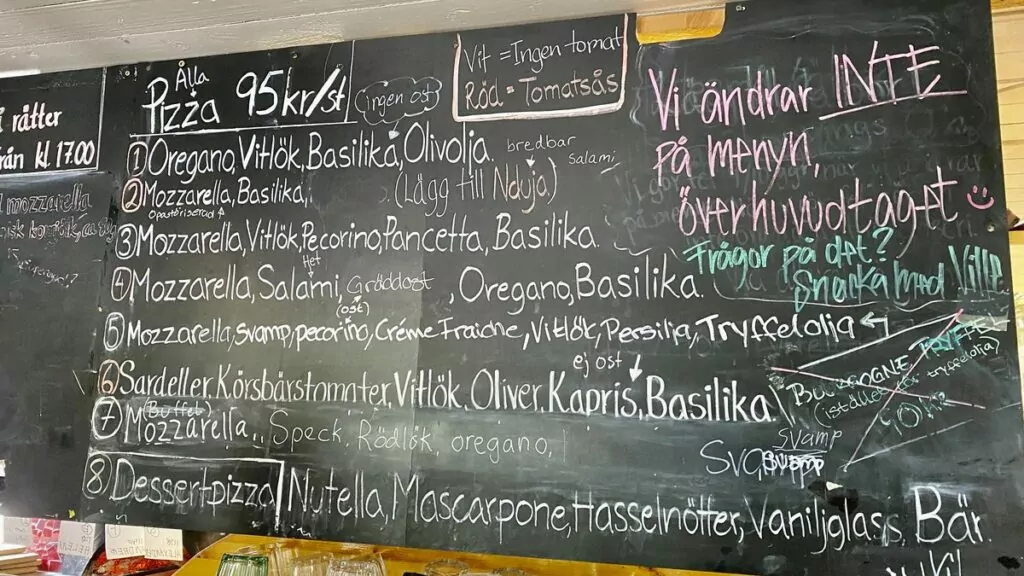 i rätter
från kl 17.00
mozzarella
Alla
Pizza 95kr/st
(ingen ost)
Vit = Ingen tomat
Röd = Tomatsås
① Oregano, Vitlök, Basilika, Olivolja
bredbar
salami
② Mozzarella, Basilika, (Lägg till Nduja)
③ Mozzarella, Vitlök, Pecorino, Pancetta, Basilika
Het
④ Mozzarella, Salami, Gräddost, Oregano, Basilika.
(ost)
⑤ Mozzarella, Svamp, pecorino, Créme Fraiche, Vitlök, Persilja, Tryffelolja
ej ost
⑥ Sardeller, Körsbärstomater, Vitlök, Oliver, Kapris, Basilika
(Buffel)
⑦ Mozzarella,, Speck, Rödlök, oregano,
⑧ Dessertpizza Nutella, Mascarpone, Hasselnötter, Vaniljglass, Bär.
Vi ändrar INTE
på menyn,
överhuvudtaget
Frågor på det?
Snacka med Ville
(istället för tryffelolja)
svamp